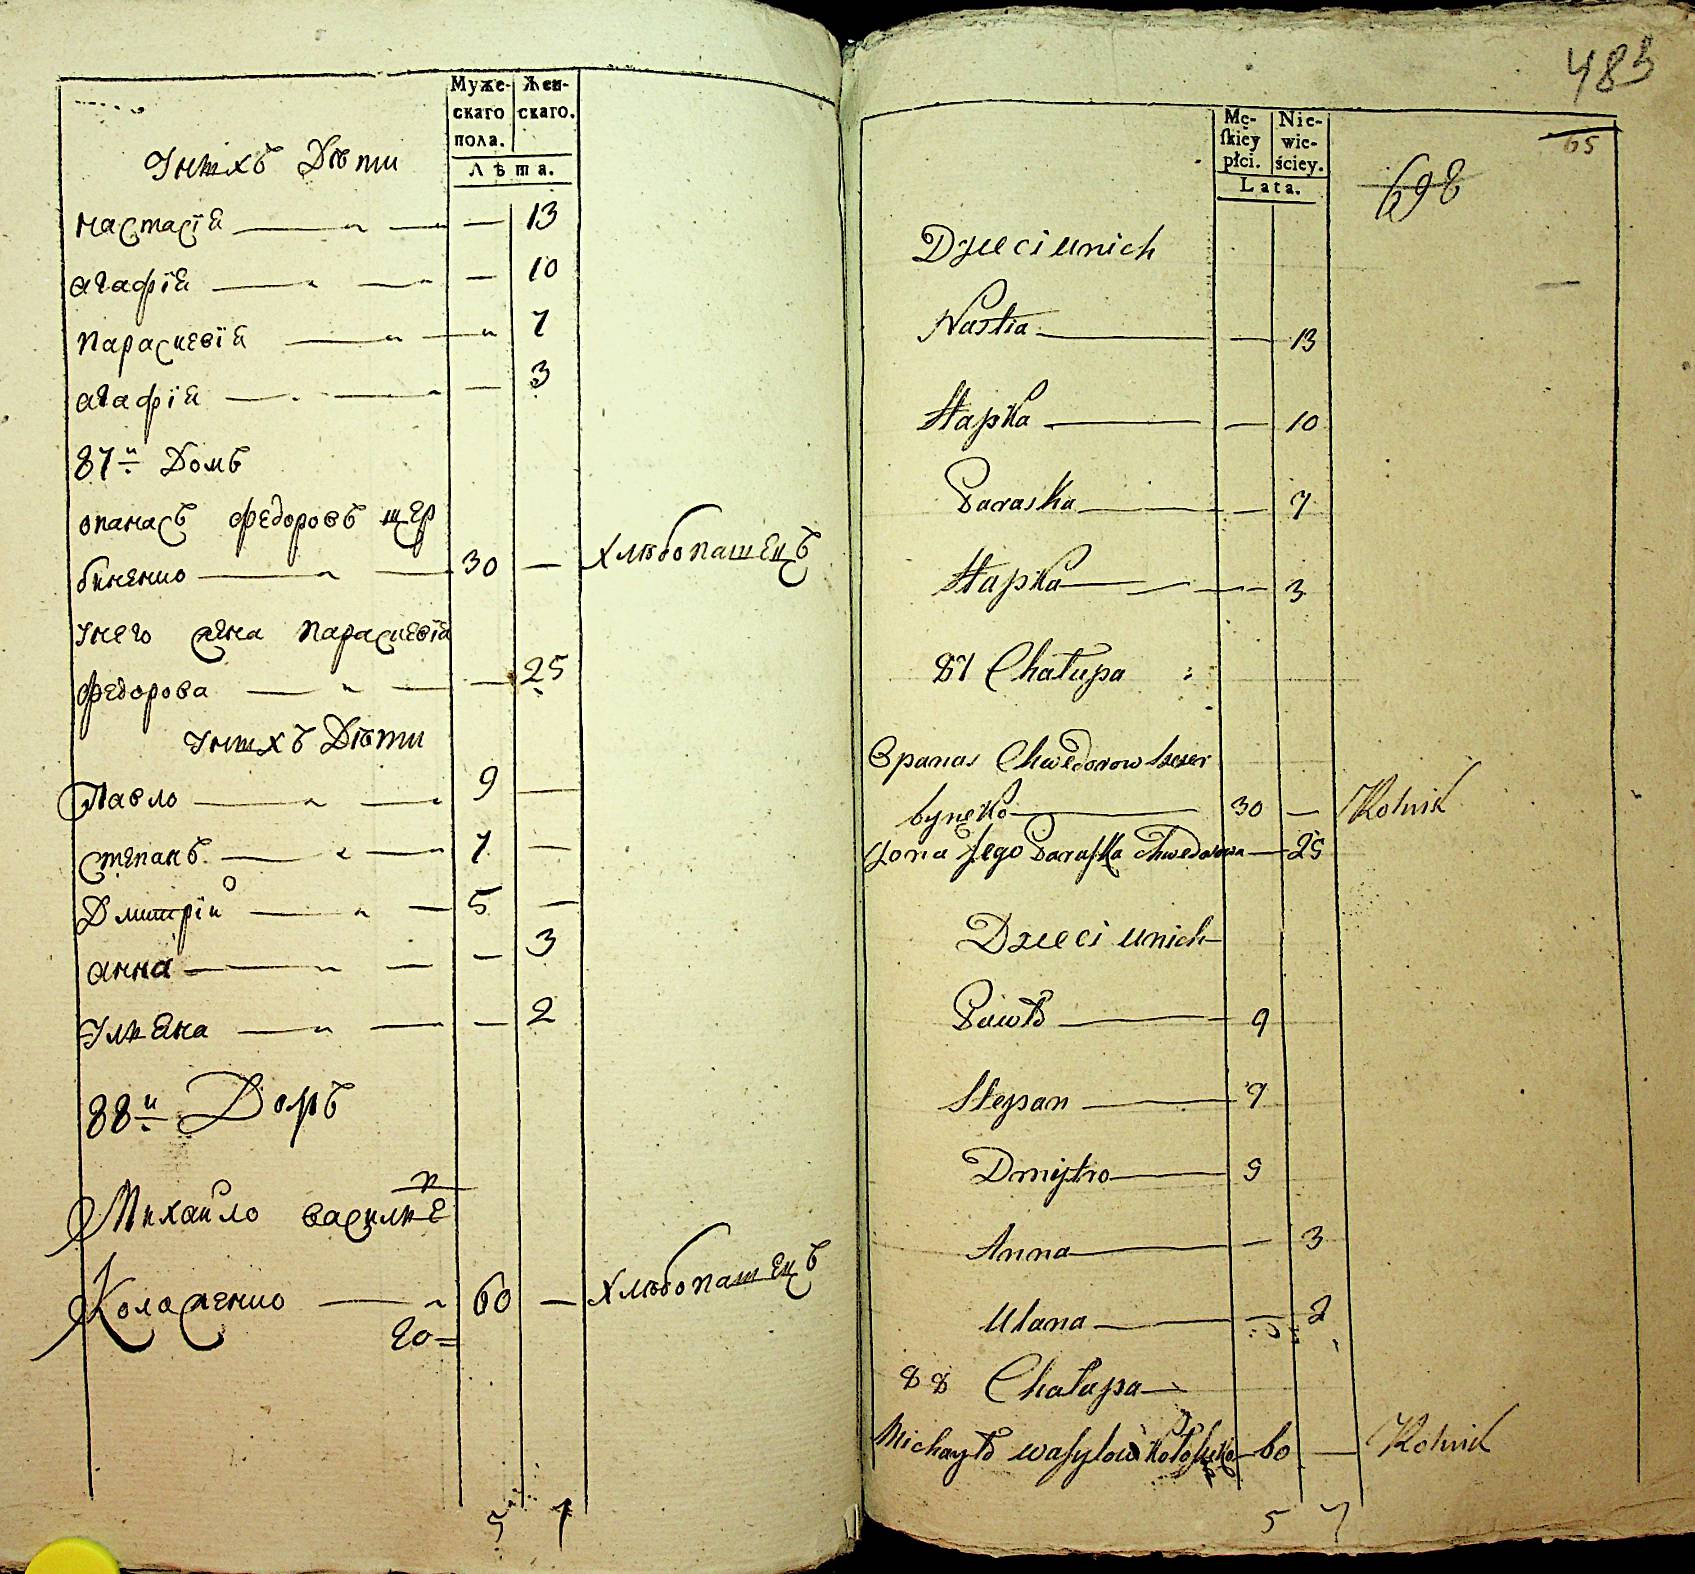 Муже-
скаго
пола.
Жен-
скаго.
Лѣта.
Унихъ Дѣти
настасїя — — — 13
агафїя — — — 10
параскевїя — — 7
агафїя — — — 3
87й Домъ
опанасъ федоровъ щер
биненко — — 30 — хлѣбопашецъ
Унего жена параскевїя
федорова — — — 25
Унихъ Дѣти
Павло — — 9 —
степанъ — — 7 —
Дмитрїй — — 5 —
анна — — — 3
Уляна — — — 2
88й Домъ
Михайло василіе
п
Коложенко — 60 — хлѣбопашецъ
20=
5 7
483
65
Mę-
skiey
płci.
Nie-
wie-
ściey.
Lata.
698
Dzieci unich
Nastia — — 13
Hapka — — 10
Paraska — — 7
Hapka — — 3
87 Chałupa
Opanas Chwedorow Szczer
bynęko — 30 — Rolnik
Żona Jego Paraska Chwedorowa — 25
Dzieci unich
Pawło — 9
Stepan — 7
Dmijtro — 5
Anna — — 3
Ulana — — 2
88 Chałupa
Michayło Wasylow — 60 — Rolnik
5 7